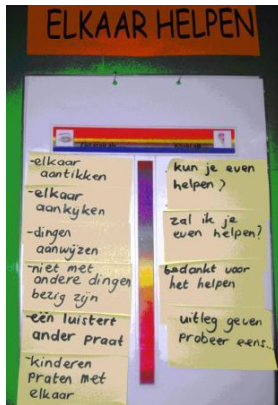 ELKAAR HELPEN
-elkaar
aantikken
-elkaar
aankyken
-dingen
aanwijzen
-niet met
andere dingen
bezig zijn
-een luistert
ander praat
-kinderen
praten met
elkaar
kun je even
helpen?
zal ik je
even helpen?
bedankt voor
het helpen
uitleg geven
probeer eens...